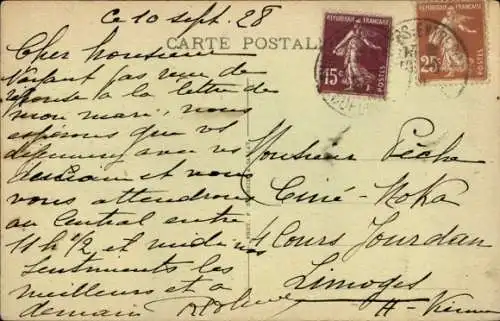 Ce 10 sept. 28
CARTE POSTALE
REPUBLIQUE FRANÇAISE
15c
POSTES
REPUBLIQUE FRANÇAISE
25c
POSTES
Cher Monsieur
N'ayant pas reçu de
réponse à la lettre de
mon mari, nous
espérons que vs
avec vs
et nous
vous attendrons
au Central entre
11h 1/2 et midi
Sentiments les
meilleurs et à
demain
Monsieur Pêcha
Ciné-Moka
4 Cours Jourdan
Limoges
H-Vienne